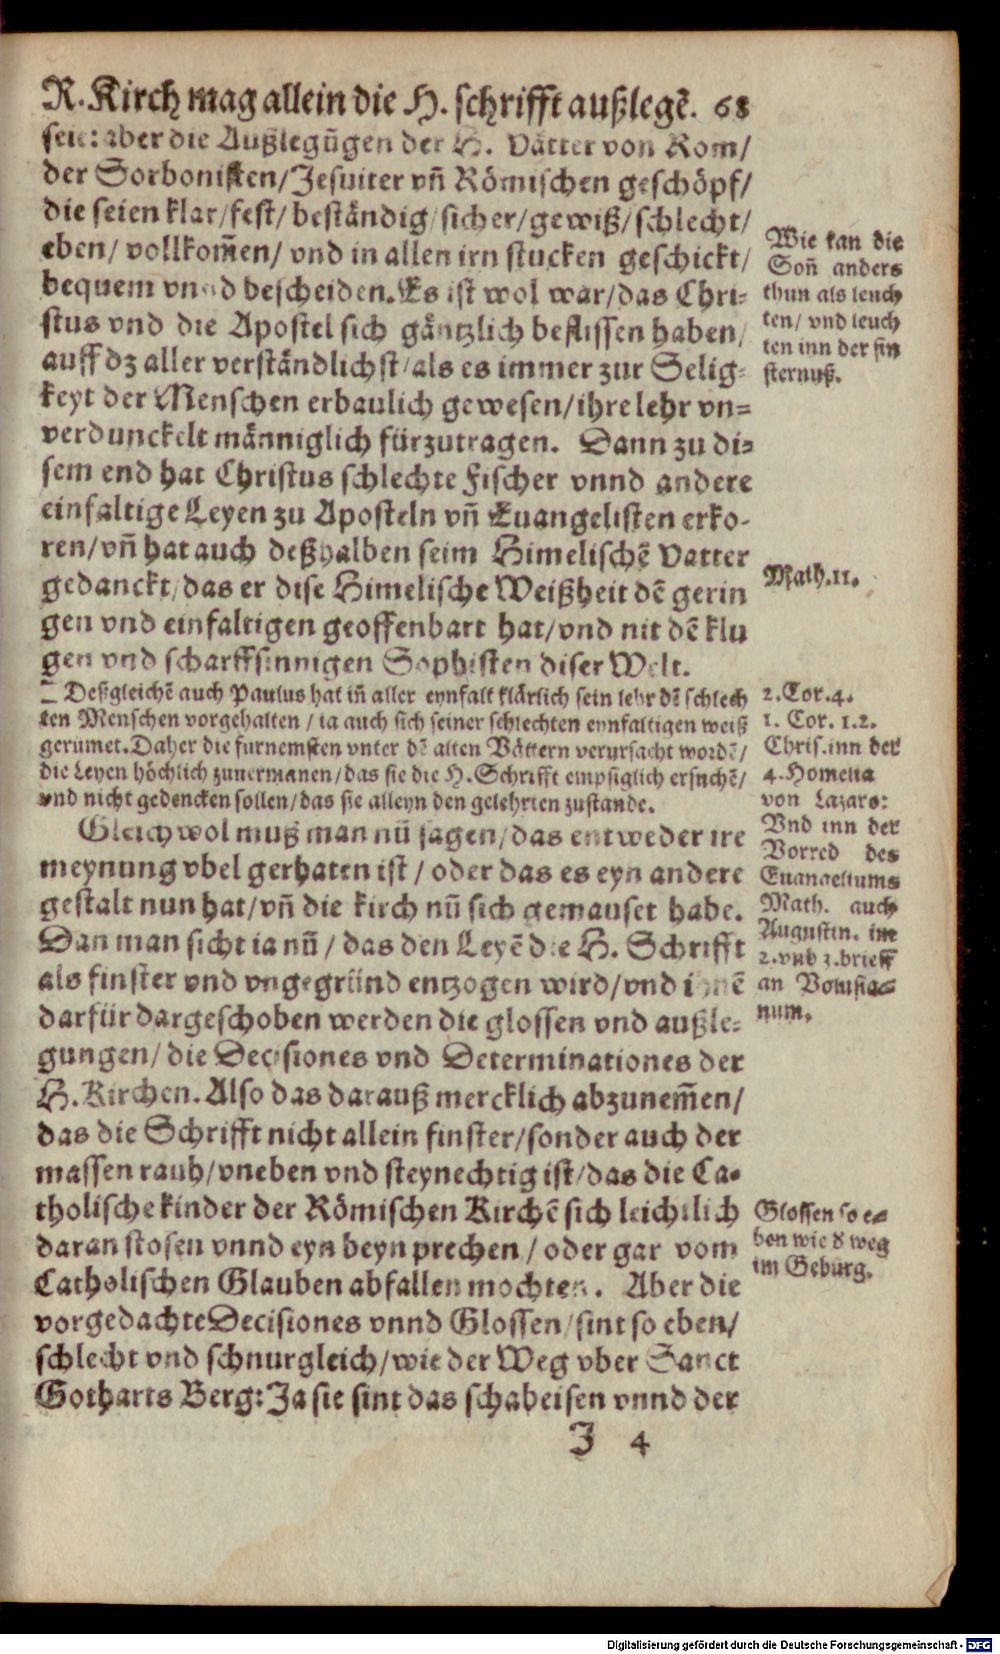 R. Kirch mag allein die H. schrifft außlegẽ. 68
seie: aber die Außlegũgen der H. Vätter von Rom/
der Sorbonisten/Jesuiter vñ Römischen geschöpf/
die seien klar/fest/beständig/sicher/gewiß/schlecht/
eben/ vollkom̃en/ vnd in allen irn stucken geschickt/
bequem vnnd bescheiden. Es ist wol war/das Chri-
stus vnd die Apostel sich gäntzlich beflissen haben/
auff dz aller verständlichst/als es immer zur Selig-
keyt der Menschen erbaulich gewesen/ihre lehr vn-
verdunckelt männiglich fürzutragen. Dann zu di-
sem end hat Christus schlechte Fischer vnnd andere
einfaltige Leyen zu Aposteln vñ Euangelisten erko-
ren/vñ hat auch deßhalben seim Himelischẽ Vatter
gedanckt/das er dise Himelische Weißheit dẽ gerin
gen vnd einfaltigen geoffenbart hat/vnd nit dẽ klu
gen vnd scharffsinnigen Sophisten diser Welt.
Deßgleichẽ auch Paulus hat iñ aller eynfalt klärlich sein lehr dẽ schlech
ten Menschen vorgehalten/ ia auch sich seiner schlechten eynfaltigen weiß
gerümet. Daher die furnemsten vnter dẽ alten Vättern verursacht wordẽ/
die Leyen höchlich zuuermanen/das sie die H. Schrifft empsiglich ersuchẽ/
vnd nicht gedencken sollen/das sie alleyn den gelehrten zustande.
Gleich wol muß man nũ sagen/das entweder ire
meynung vbel gerhaten ist/ oder das es eyn andere
gestalt nun hat/vñ die kirch nũ sich gemauset habe.
Dan man sicht ia nũ/ das den Leyẽ die H. Schrifft
als finster vnd vngegründ entzogen wird/vnd ihnẽ
darfür dargeschoben werden die glossen vnd außle-
gungen/ die Decisiones vnd Determinationes der
H. Kirchen. Also das darauß mercklich abzunem̃en/
das die Schrifft nicht allein finster/sonder auch der
massen rauh/vneben vnd steynechtig ist/das die Ca-
tholische kinder der Römischen Kirchẽ sich leichtlich
daran stosen vnnd eyn beyn prechen/ oder gar vom
Catholischen Glauben abfallen mochten. Aber die
vorgedachte Decisiones vnnd Glossen/sint so eben/
schlecht vnd schnurgleich/wie der Weg vber Sanct
Gotharts Berg: Ja sie sint das schabeisen vnnd der
J 4
Wie kan die
Soñ anders
thun als leuch
ten/ vnd leuch
ten inn der fin
sternuß.
Math.11.
2. Cor. 4.
1. Cor. 1.2.
Chris. inn der
4. Homelia
von Lazaro:
Vnd inn der
Vorred des
Euangeliums
Math. auch
Augustin. im
2. vnd 3. brieff
an Volusia-
num.
Glossen so e-
ben wie d weg
im Gebürg.
Digitalisierung gefördert durch die Deutsche Forschungsgemeinschaft - DFG